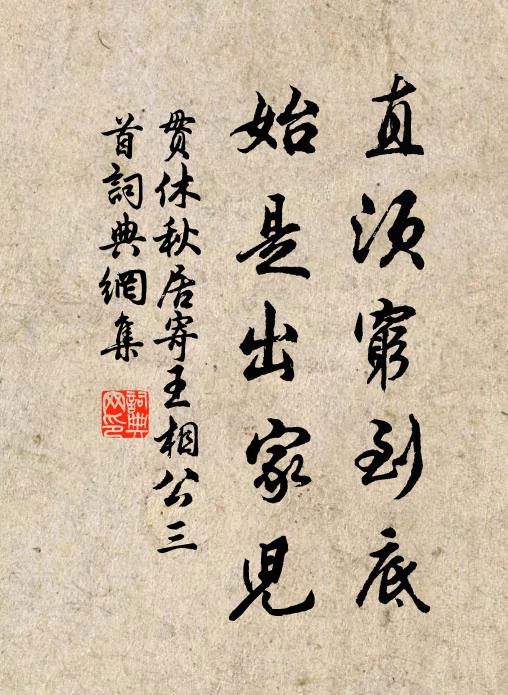 直須窮到底
始是出家兒
貫休秋居寄王相公三
首詞典網集
詞典
网印